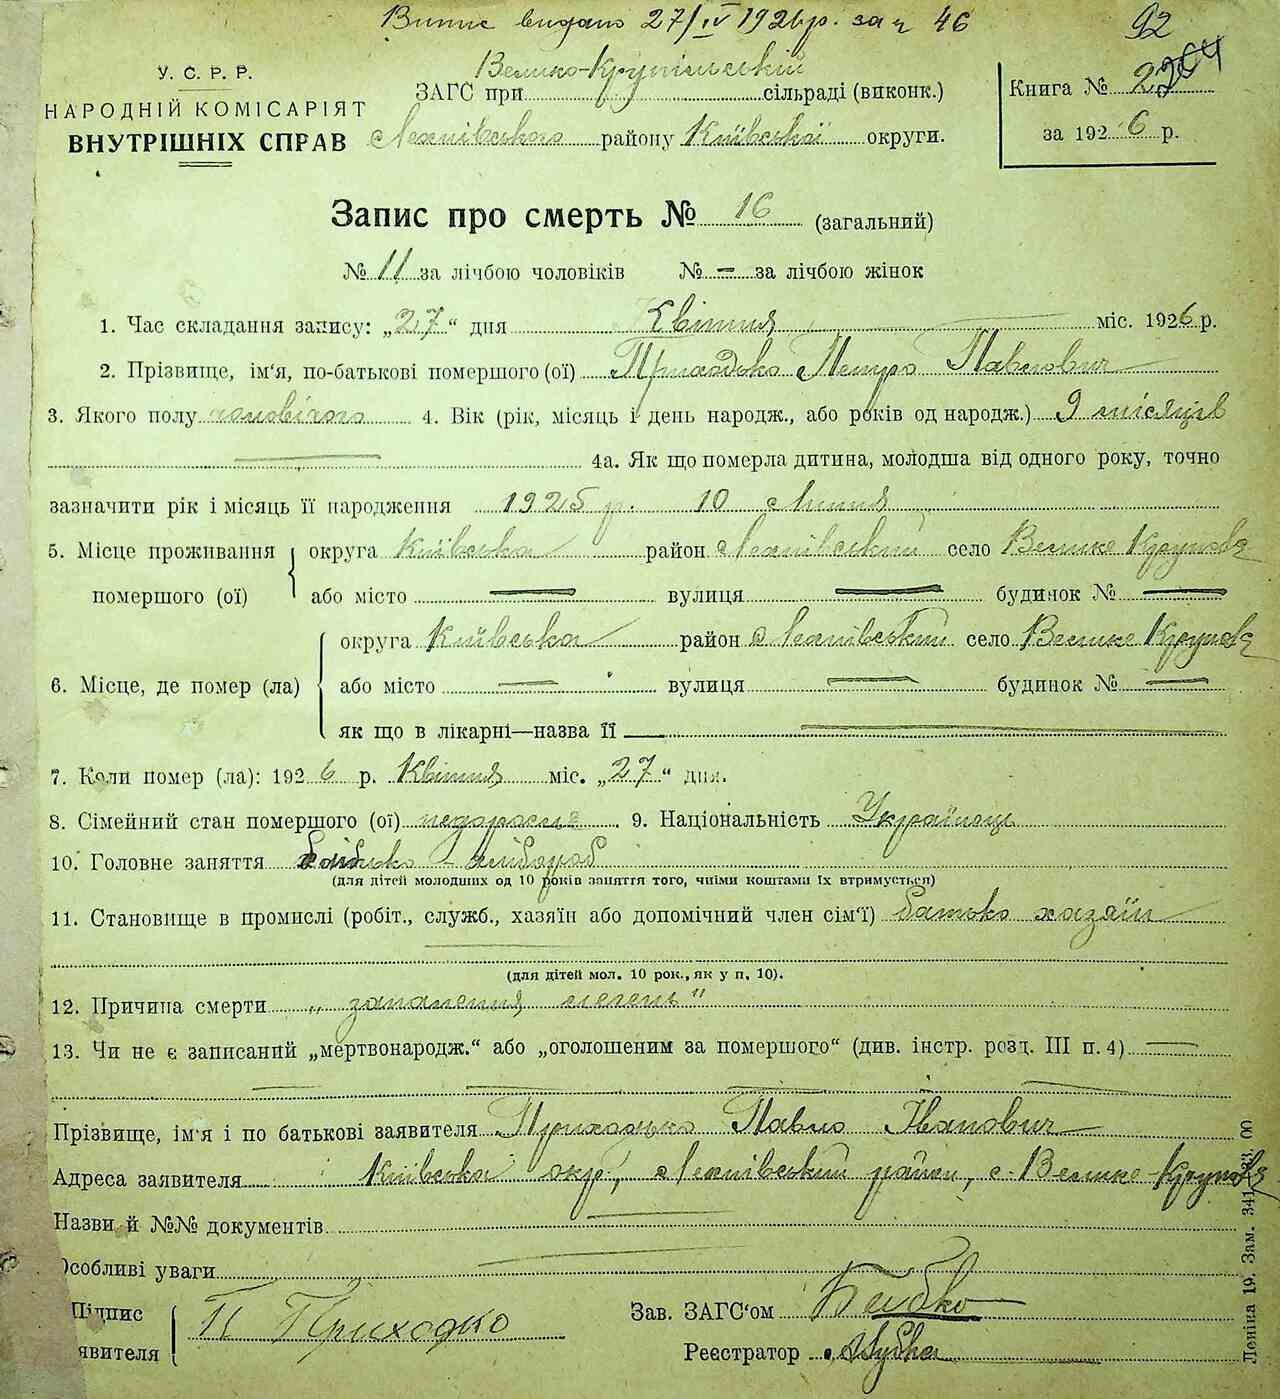 Випис видано 27/IV 1926р. за ч 46 92
У. С. Р. Р.
НАРОДНІЙ КОМІСАРІЯТ
ВНУТРІШНІХ СПРАВ
Велико-Крупільській
ЗАГС при сільраді (виконк.)
району Київської округи.
Книга №
за 1926 р.
Запис про смерть № 16 (загальний)
№ 11 за лічбою чоловіків № – за лічбою жінок
1. Час складання запису: „27“ дня Квітня міс. 1926 р.
2. Прізвище, ім'я, по-батькові помершого (ої) Приходько Петро Павлович
3. Якого полу чоловічого 4. Вік (рік, місяць і день народж., або років од народж.) 9 місяців
4а. Як що померла дитина, молодша від одного року, точно
зазначити рік і місяць її народження 1925 р. 10 Липня
5. Місце проживання помершого (ої) округа Київська район село Велике Круполє
або місто — вулиця — будинок № —
6. Місце, де помер (ла) округа Київська район село Велике Круполє
або місто — вулиця — будинок № —
як що в лікарні—назва її —
7. Коли помер (ла): 1926 р. Квітня міс. „27“ дня.
8. Сімейний стан помершого (ої) 9. Національність Українець
10. Головне заняття батько - хлібороб
(для дітей молодших од 10 років заняття того, чиїми коштами їх втримується)
11. Становище в промислі (робіт., служб., хазяїн або допомічний член сім'ї) батько хазяїн
(для дітей мол. 10 рок., як у п. 10).
12. Причина смерти „запалення легень"
13. Чи не є записаний „мертвонародж.“ або „оголошеним за помершого“ (див. інстр. розд. III п. 4) —
Прізвище, ім'я і по батькові заявителя Приходько Павло Іванович
Адреса заявителя Київська окр, район, с. Велике-Круполє
Назви й №№ документів
Особливі уваги
Підпис
явителя
П Приходко
Зав. ЗАГС'ом
Реєстратор
Леніна 19. Зам. 341